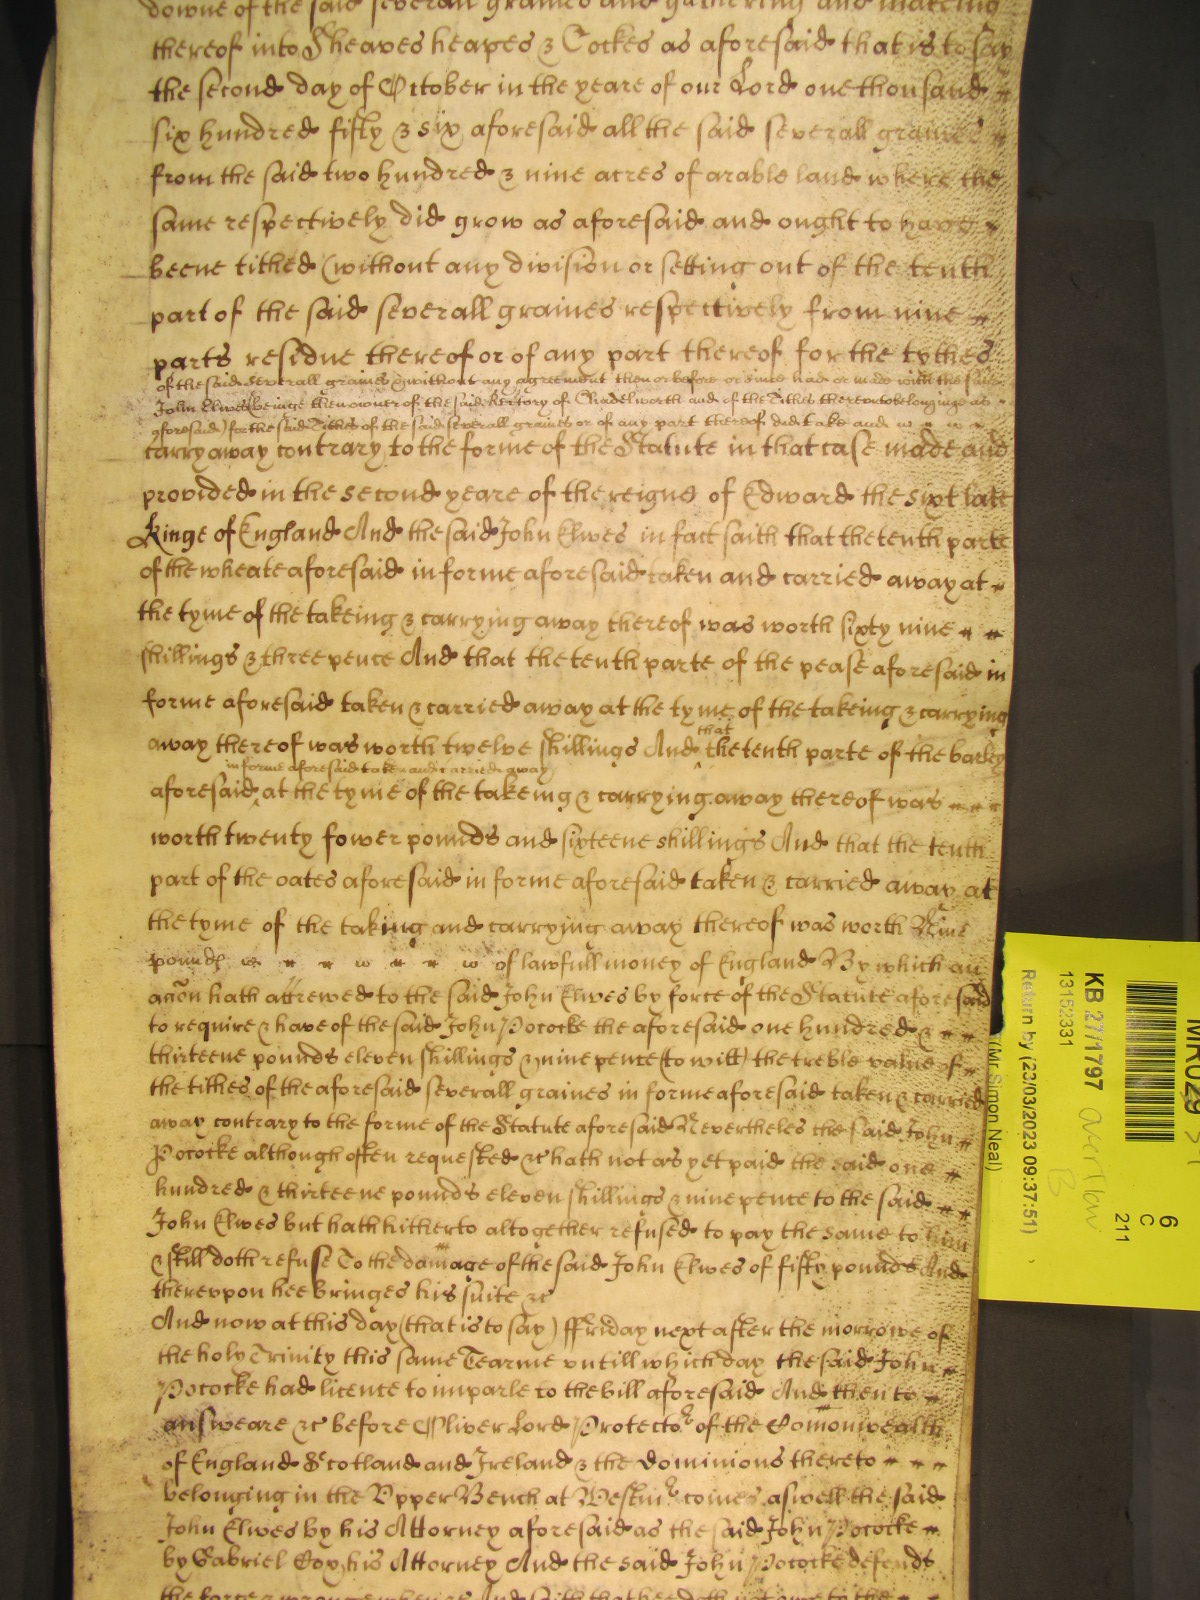 downe of the said severall graines and gathering and makeing
thereof into Sheaves heapes & Cockes as aforesaid that is to say
the second day of October in the yeare of our Lord one thousand
six hundred fifty & six aforesaid all the said severall graines
from the said two hundred & nine acres of arable land where the
same respectively did grow as aforesaid and ought to have
beene tithed (without any division or setting out of the tenth
part of the said severall graines respectively from nine
parts residue thereof or of any part thereof for the tythes
of the said severall graines & without any agreement then or before or since had or made with the said
John Elwes beinge then owner of the said Rectory of Chadelworth and of the Tithes thereunto belonginge as
aforesaid) for the said Tithes of the said severall graines or of any part thereof did take and
carry away contrary to the forme of the Statute in that case made and
provided in the second yeare of the reigne of Edward the sixt late
Kinge of England And the said John Elwes in fact saith that the tenth parte
of the wheate aforesaid in forme aforesaid taken and carried away at
the tyme of the takeing & carrying away thereof was worth sixty nine
shillings & three pence And that the tenth parte of the pease aforesaid in
forme aforesaid taken & carried away at the tyme of the takeing & carrying
away thereof was worth twelve shillings And that the tenth parte of the barley
in forme aforesaid taken and carried away
aforesaid at the tyme of the takeing & carrying away thereof was
worth twenty fower pounds and sixteene shillings And that the tenth
part of the oates aforesaid in forme aforesaid taken & carried away at
the tyme of the taking and carrying away thereof was worth Nine
pounds of lawfull money of England By which an
accon hath accrewed to the said John Elwes by force of the Statute aforesaid
to require & have of the said John Pococke the aforesaid one hundred &
thirteene pounds eleven shillings & nine pence (to witt) the treble value of
the tithes of the aforesaid severall graines in forme aforesaid taken & carried
away contrary to the forme of the Statute aforesaid Nevertheles the said John
Pococke although often requested &c hath not as yet paid the said one
hundred & thirteene pounds eleven shillings & nine pence to the said
John Elwes but hath hitherto altogether refused to pay the same to him
& still doth refuse To the damage of the said John Elwes of fifty pounds And
thereupon hee bringes his suite &c
And now at this day (that is to say) ffriday next after the morrowe of
the holy Trinity this same Tearme untill which day the said John
Pococke had licence to imparle to the bill aforesaid And then to
answeare &c before Oliver Lord Protector of the Comonwealth
of England Scotland and Ireland & the dominions thereto
belonging in the Upper Bench at Westmr comes aswell the said
John Elwes by his Attorney aforesaid as the said John Pococke
by Gabriel Coxe his Attorney And the said John Pococke defends
6
C
211
KB 27/1797 overflow
B
13152331
Return by (23/03/2023 09:37:51)
(Mr Simon Neal)